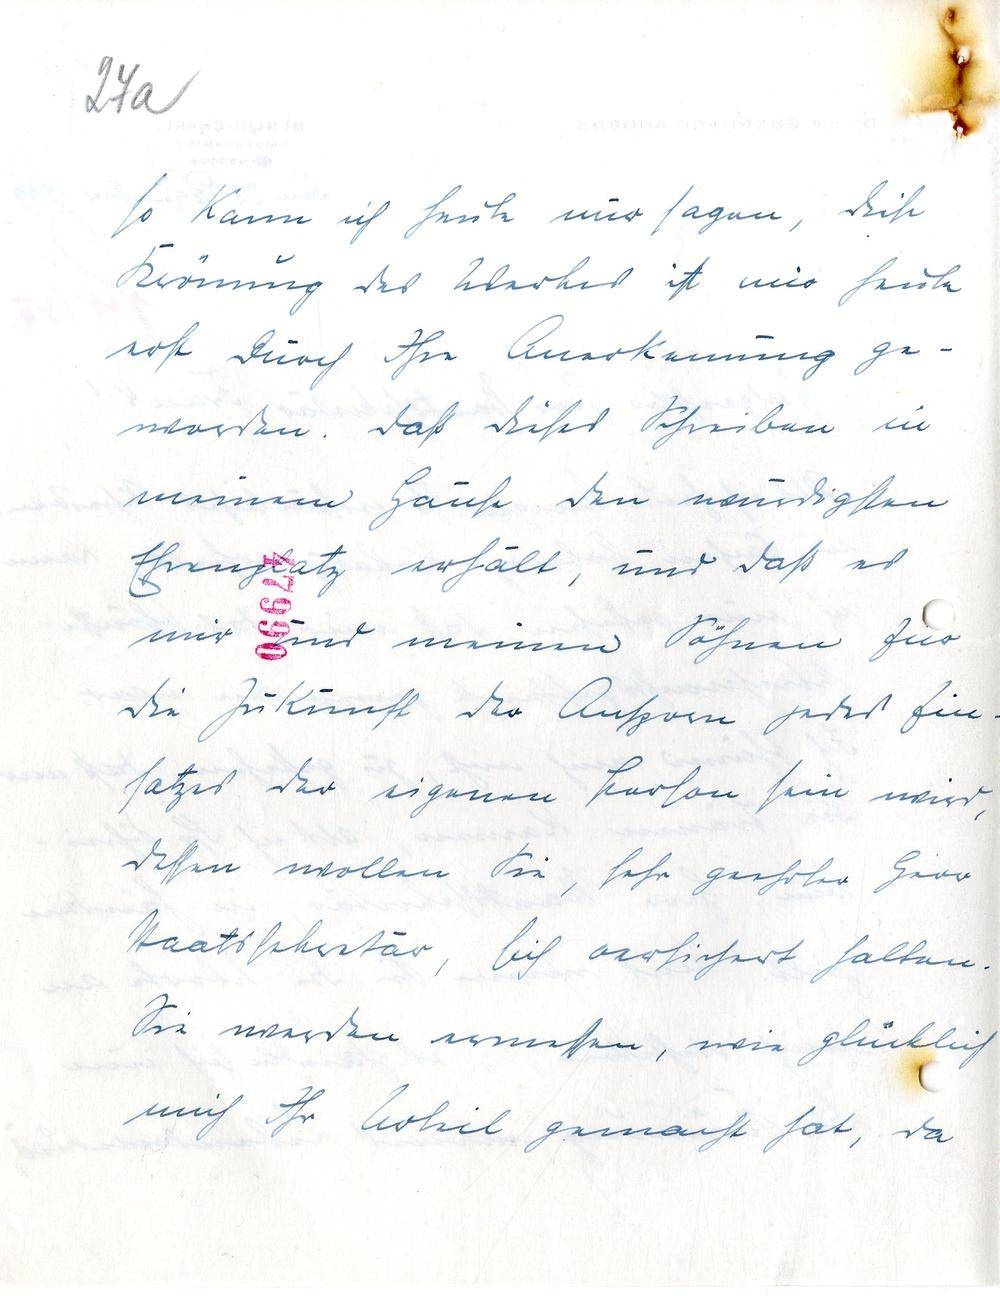 27a
so kann ich heute nur sagen, diese
Krönung des Werkes ist mir heute
erst durch Ihre Anerkennung ge-
worden. Daß dieses Schreiben in
meinem Hause den würdigsten
Ehrenplatz erhält, und daß es
mir und meinen Söhnen für
die Zukunft der Ansporn jedes Ein-
satzes der eigenen Person sein wird,
dessen wollen Sie, sehr geehrter Herr
Staatssekretär, sich versichert halten.
Sie werden ermessen, wie glücklich
mich Ihr Urteil gemacht hat, da
479990